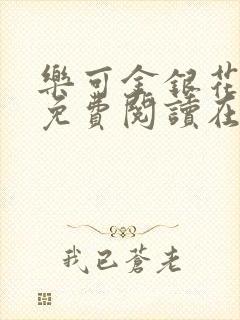 樂可金銀花
免費閱讀在
我已蒼老